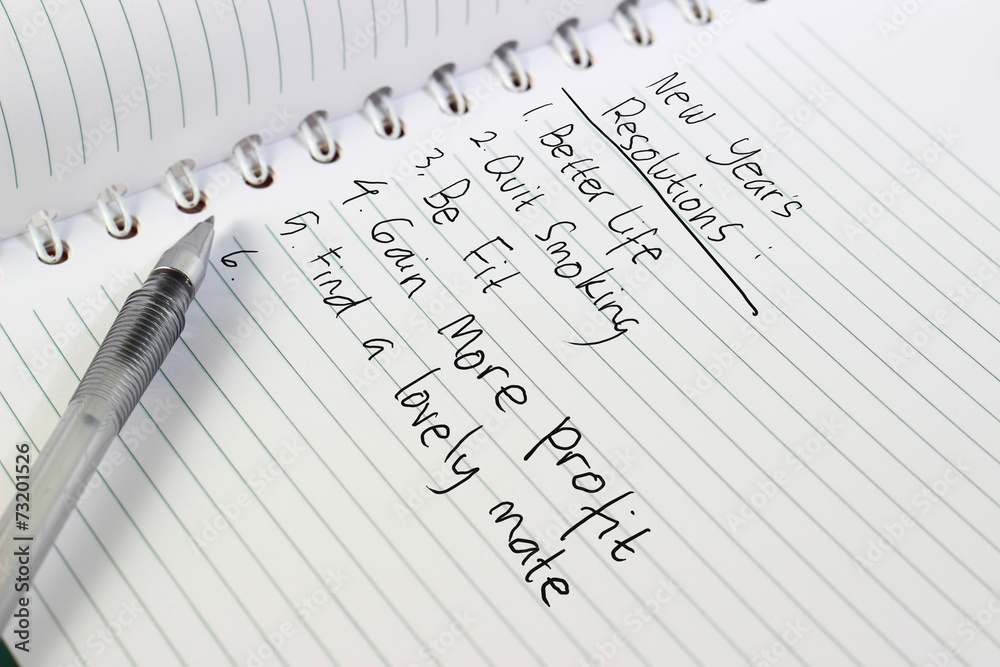 New Year's
Resolutions:
1. Better Life
2. Quit Smoking
3. Be Fit
4. Gain More Profit
5. Find a lovely mate
6.
Adobe Stock | #73201526